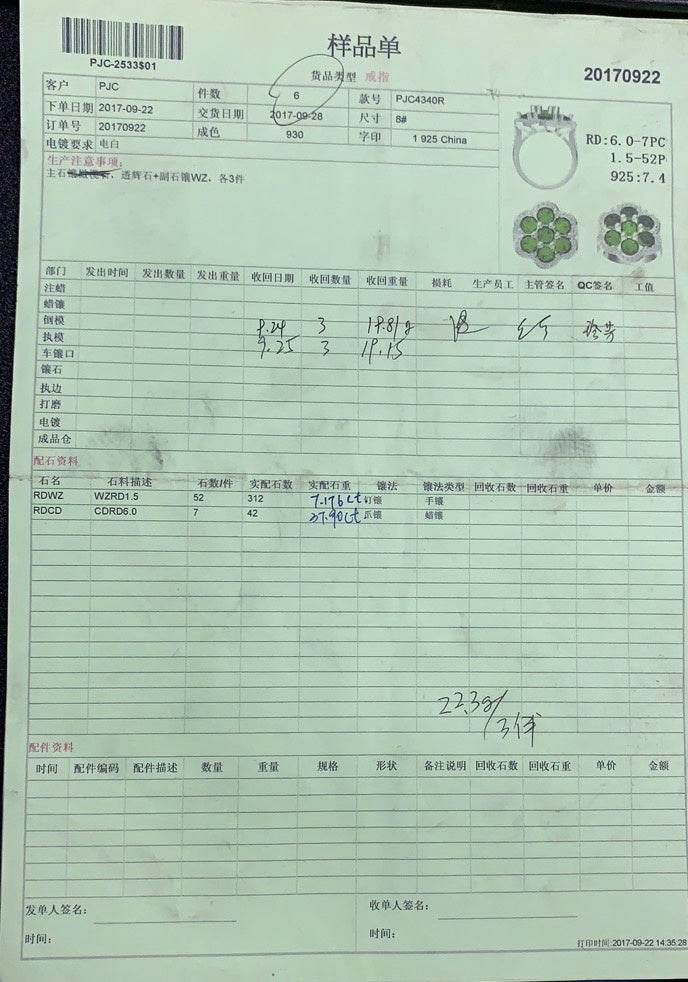 PJC-2533$01
样品单
货品类型 戒指
20170922
客户 PJC 件数 6 款号 PJC4340R
下单日期 2017-09-22 交货日期 2017-09-28 尺寸 8#
订单号 20170922 成色 930 字印 1 925 China
电镀要求 电白
RD:6.0-7PC
1.5-52P
925:7.4
生产注意事项:
主石 透辉石+副石镶WZ，各3件
部门 发出时间 发出数量 发出重量 收回日期 收回数量 收回重量 损耗 生产员工 主管签名 QC签名 工值
注蜡
蜡镶
倒模 9.24 3 19.81g
执模 9.25 3 19.15
车镶口
镶石
执边
打磨
电镀
成品仓
配石资料
石名 石料描述 石数/件 实配石数 实配石重 镶法 镶法类型 回收石数 回收石重 单价 金额
RDWZ WZRD1.5 52 312 7.176ct 钉镶 手镶
RDCD CDRD6.0 7 42 37.90ct 爪镶 蜡镶
22.3g/3件
配件资料
时间 配件编码 配件描述 数量 重量 规格 形状 备注说明 回收石数 回收石重 单价 金额
发单人签名: 收单人签名:
时间: 时间:
打印时间:2017-09-22 14:35:28